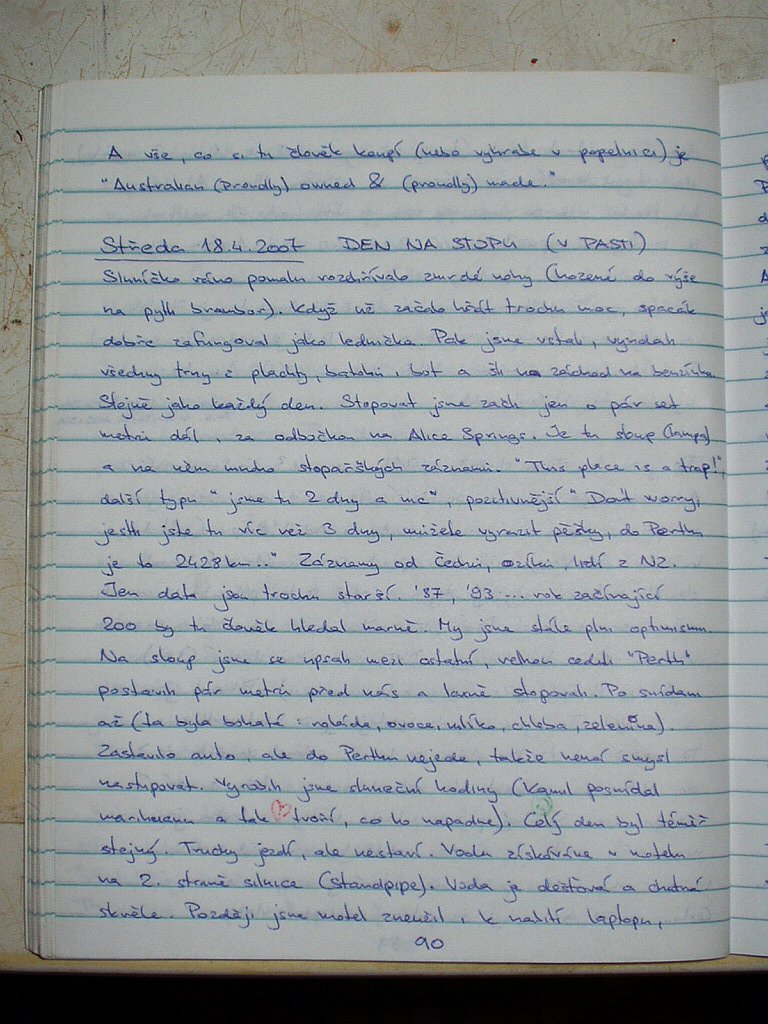 A vše, co si tu člověk koupí (nebo vyhrabe v popelnici) je
"Australian (proudly) owned & (proudly) made."
Středa 18.4.2007 DEN NA STOPU (V PASTI)
Sluníčko ráno pomalu zmrzlé nohy (hozené do výše
na pytli brambor). Když už začalo hřát trochu moc, spacák
dobře zafungoval jako lednička. Pak jsme vstali, vyndali
všechny trny z plachty, batohů, bot a šli na záchod na benzínku.
Stejně jako každý den. Stopovat jsme začli jen o pár set
metrů dál, za odbočkou na Alice Springs. Je tu sloup (lampa)
a na něm mnoho stopařských záznamů. "This place is a trap!",
další typu "jsme tu 2 dny a nic", pozitivnější "Don't worry,
jestli jste tu víc než 3 dny, můžete vyrazit pěšky, do Perthu
je to 2428 km.." Záznamy od Čechů, lidí z NZ.
Jen data jsou trochu starší. '87, '93 ... rok začínající
200 by tu člověk hledal marně. My jsme stále plni optimismu.
Na sloup jsme se upsali mezi ostatní, velkou ceduli "Perth"
postavili pár metrů před nás a lačně stopovali. Po snídani
až (ta byla bohatá: roláda, ovoce, mlíko, chleba, zelenina).
Zastavilo auto, ale do Perthu nejede, takže nemá smysl
nastupovat. Vyrobili jsme sluneční hodiny (Kamil posnídal
marihuanu a tak tvoří, co ho napadne). Celý den byl téměř
stejný. Trucky jezdí, ale nestaví. Vodu získáváme v motelu
na 2. straně silnice (standpipe). Voda je dešťová a chutná
skvěle. Později jsme motel zneužili i k nabití laptopu,
90